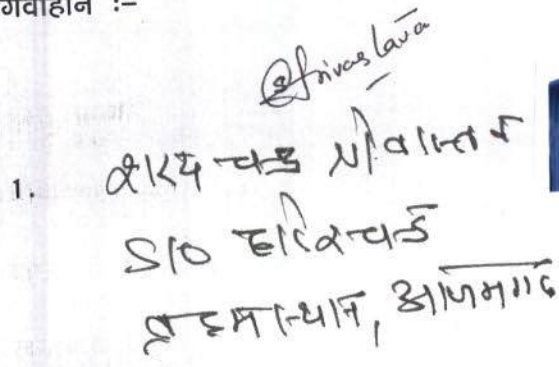 गवाहान :-
Srivastava
1. शरद चन्द्र श्रीवास्तव
S/O हरिश्चन्द्र
ब्रह्मस्थान, आजमगढ